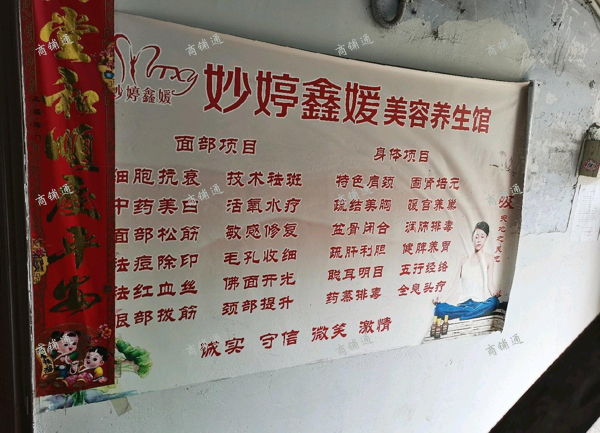 堂和顺居平安
mtxy
妙婷鑫媛
妙婷鑫媛美容养生馆
面部项目
身体项目
细胞抗衰 技术祛斑 特色肩颈 固肾培元
中药美白 活氧水疗 疏结美胸 暖食养巢
面部松筋 敏感修复 盆骨闭合 润肺排毒
祛痘除印 毛孔收细 疏肝利胆 健脾养胃
祛红血丝 佛面开光 聪耳明目 五行经络
眼部拨筋 颈部提升 药蒸排毒 全息头疗
诚实 守信 微笑 激情
商铺通
商铺通
商铺通
商铺通
商铺通
商铺通
商铺通
商铺通
商铺通
商铺通
商铺通
商铺通